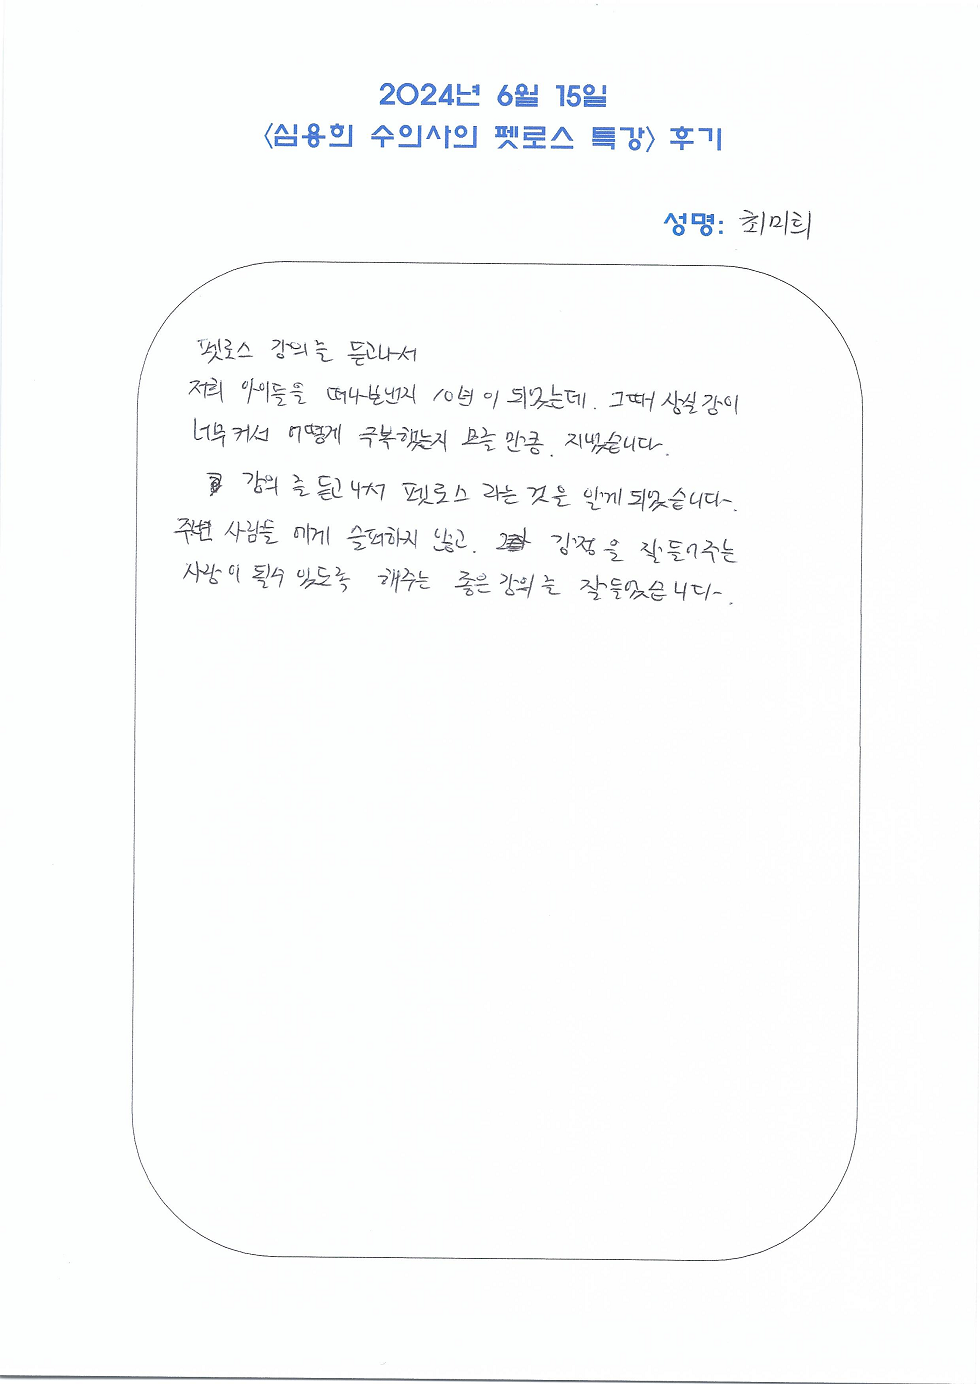 2024년 6월 15일
<심용희 수의사의 펫로스 특강> 후기
성명: 최미희
펫로스 강의를 듣고나서
저희 아이들을 떠나보낸지 10년이 되었는데. 그때 상실감이
너무 커서 어떻게 극복했는지 모를 만큼. 지냈습니다.
강의를 듣고나서 펫로스 라는 것을 알게 되었습니다.
주변 사람들 에게 슬퍼하지 않고. 감정을 잘 들어주는
사람이 될수 있도록 해주는 좋은 강의를 잘들었습니다.